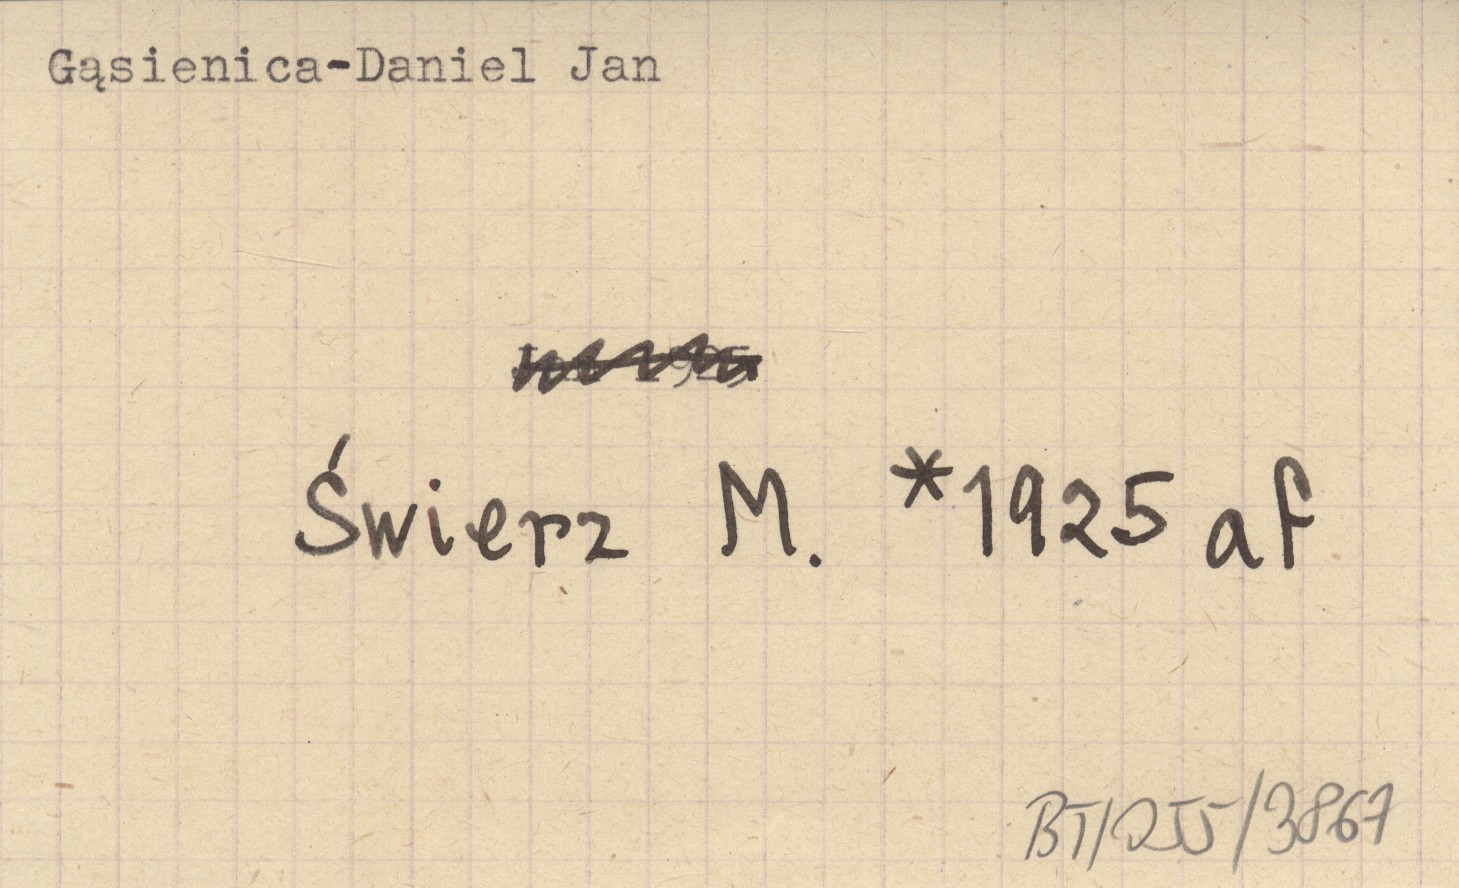 Gąsienica-Daniel Jan
Świerz M. *1925 af
BT/255/3867